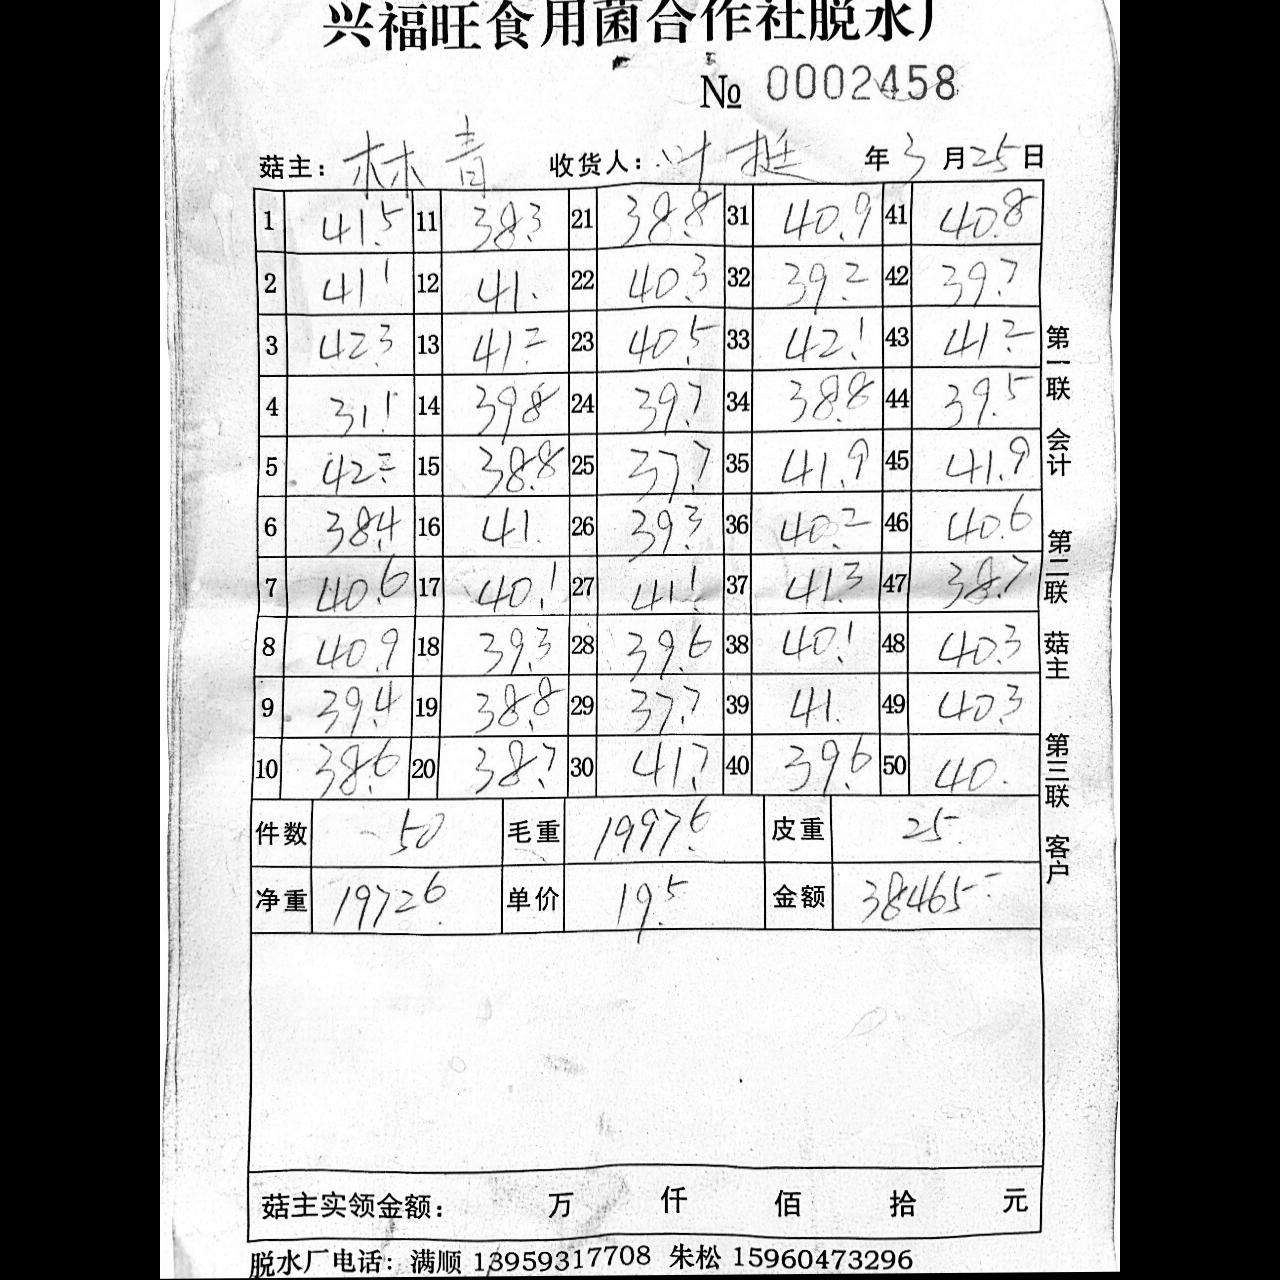 兴福旺食用菌合作社脱水厂
№ 0002458
菇主: 林青 收货人: 叶挺 年 3 月 25 日
1 41.5 11 38.3 21 38.8 31 40.9 41 40.8
2 41.1 12 41. 22 40.3 32 39.2 42 39.7
3 42.3 13 41.2 23 40.5 33 42.1 43 41.2
4 31.1 14 39.8 24 39.7 34 38.8 44 39.5
5 42.2 15 38.8 25 37.7 35 41.9 45 41.9
6 38.4 16 41. 26 39.3 36 40.2 46 40.6
7 40.6 17 40.1 27 41.1 37 41.3 47 38.7
8 40.9 18 39.3 28 39.6 38 40.1 48 40.3
9 39.4 19 38.8 29 37.7 39 41. 49 40.3
10 38.6 20 38.7 30 41.7 40 39.6 50 40.
件数 50 毛重 1997.6 皮重 25.
净重 1972.6 单价 19.5 金额 38465-
菇主实领金额: 万 仟 佰 拾 元
脱水厂电话: 满顺 13959317708 朱松 15960473296
第一联 会计 第二联 菇主 第三联 客户